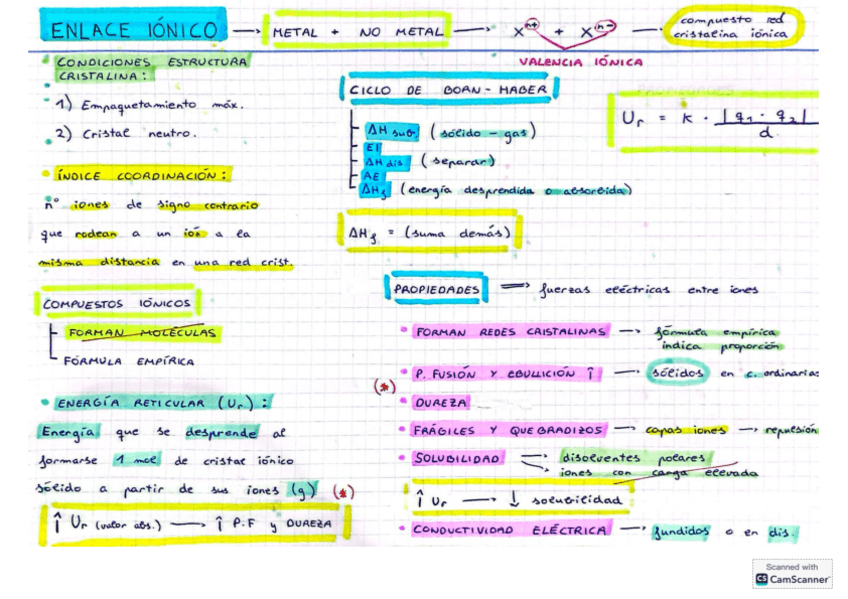 ENLACE IÓNICO → METAL + NO METAL → X^n+ + X^n- — compuesto red cristalina iónica
VALENCIA IÓNICA
• CONDICIONES ESTRUCTURA
CRISTALINA:
1) Empaquetamiento máx.
2) Cristal neutro.
• ÍNDICE COORDINACIÓN:
nº iones de signo contrario
que rodean a un ión a la
misma distancia en una red crist.
COMPUESTOS IÓNICOS
FORMAN MOLÉCULAS
FÓRMULA EMPÍRICA
• ENERGÍA RETICULAR (Ur):
Energía que se desprende al
formarse 1 mol de cristal iónico
sólido a partir de sus iones (g) (*)
↑ Ur (valor abs.) → ↑ P.F y DUREZA
CICLO DE BORN-HABER
ΔH sub (sólido - gas)
EI
ΔH dis (separar)
AE
ΔHf (energía desprendida o absorbida)
ΔHf = (suma demás)
Ur = K · |q1 · q2| / d
PROPIEDADES ⟹ fuerzas eléctricas entre iones
• FORMAN REDES CRISTALINAS → fórmula empírica
indica proporción
• P. FUSIÓN Y EBULLICIÓN ↑ → sólidos en c. ordinarias
(*)
• DUREZA
• FRÁGILES Y QUEBRADIZOS → capas iones → repulsión
• SOLUBILIDAD → disolventes polares
→ iones con carga elevada
↑ Ur → ↓ solubilidad
• CONDUCTIVIDAD ELÉCTRICA → fundidos o en dis.
Scanned with
CS CamScanner